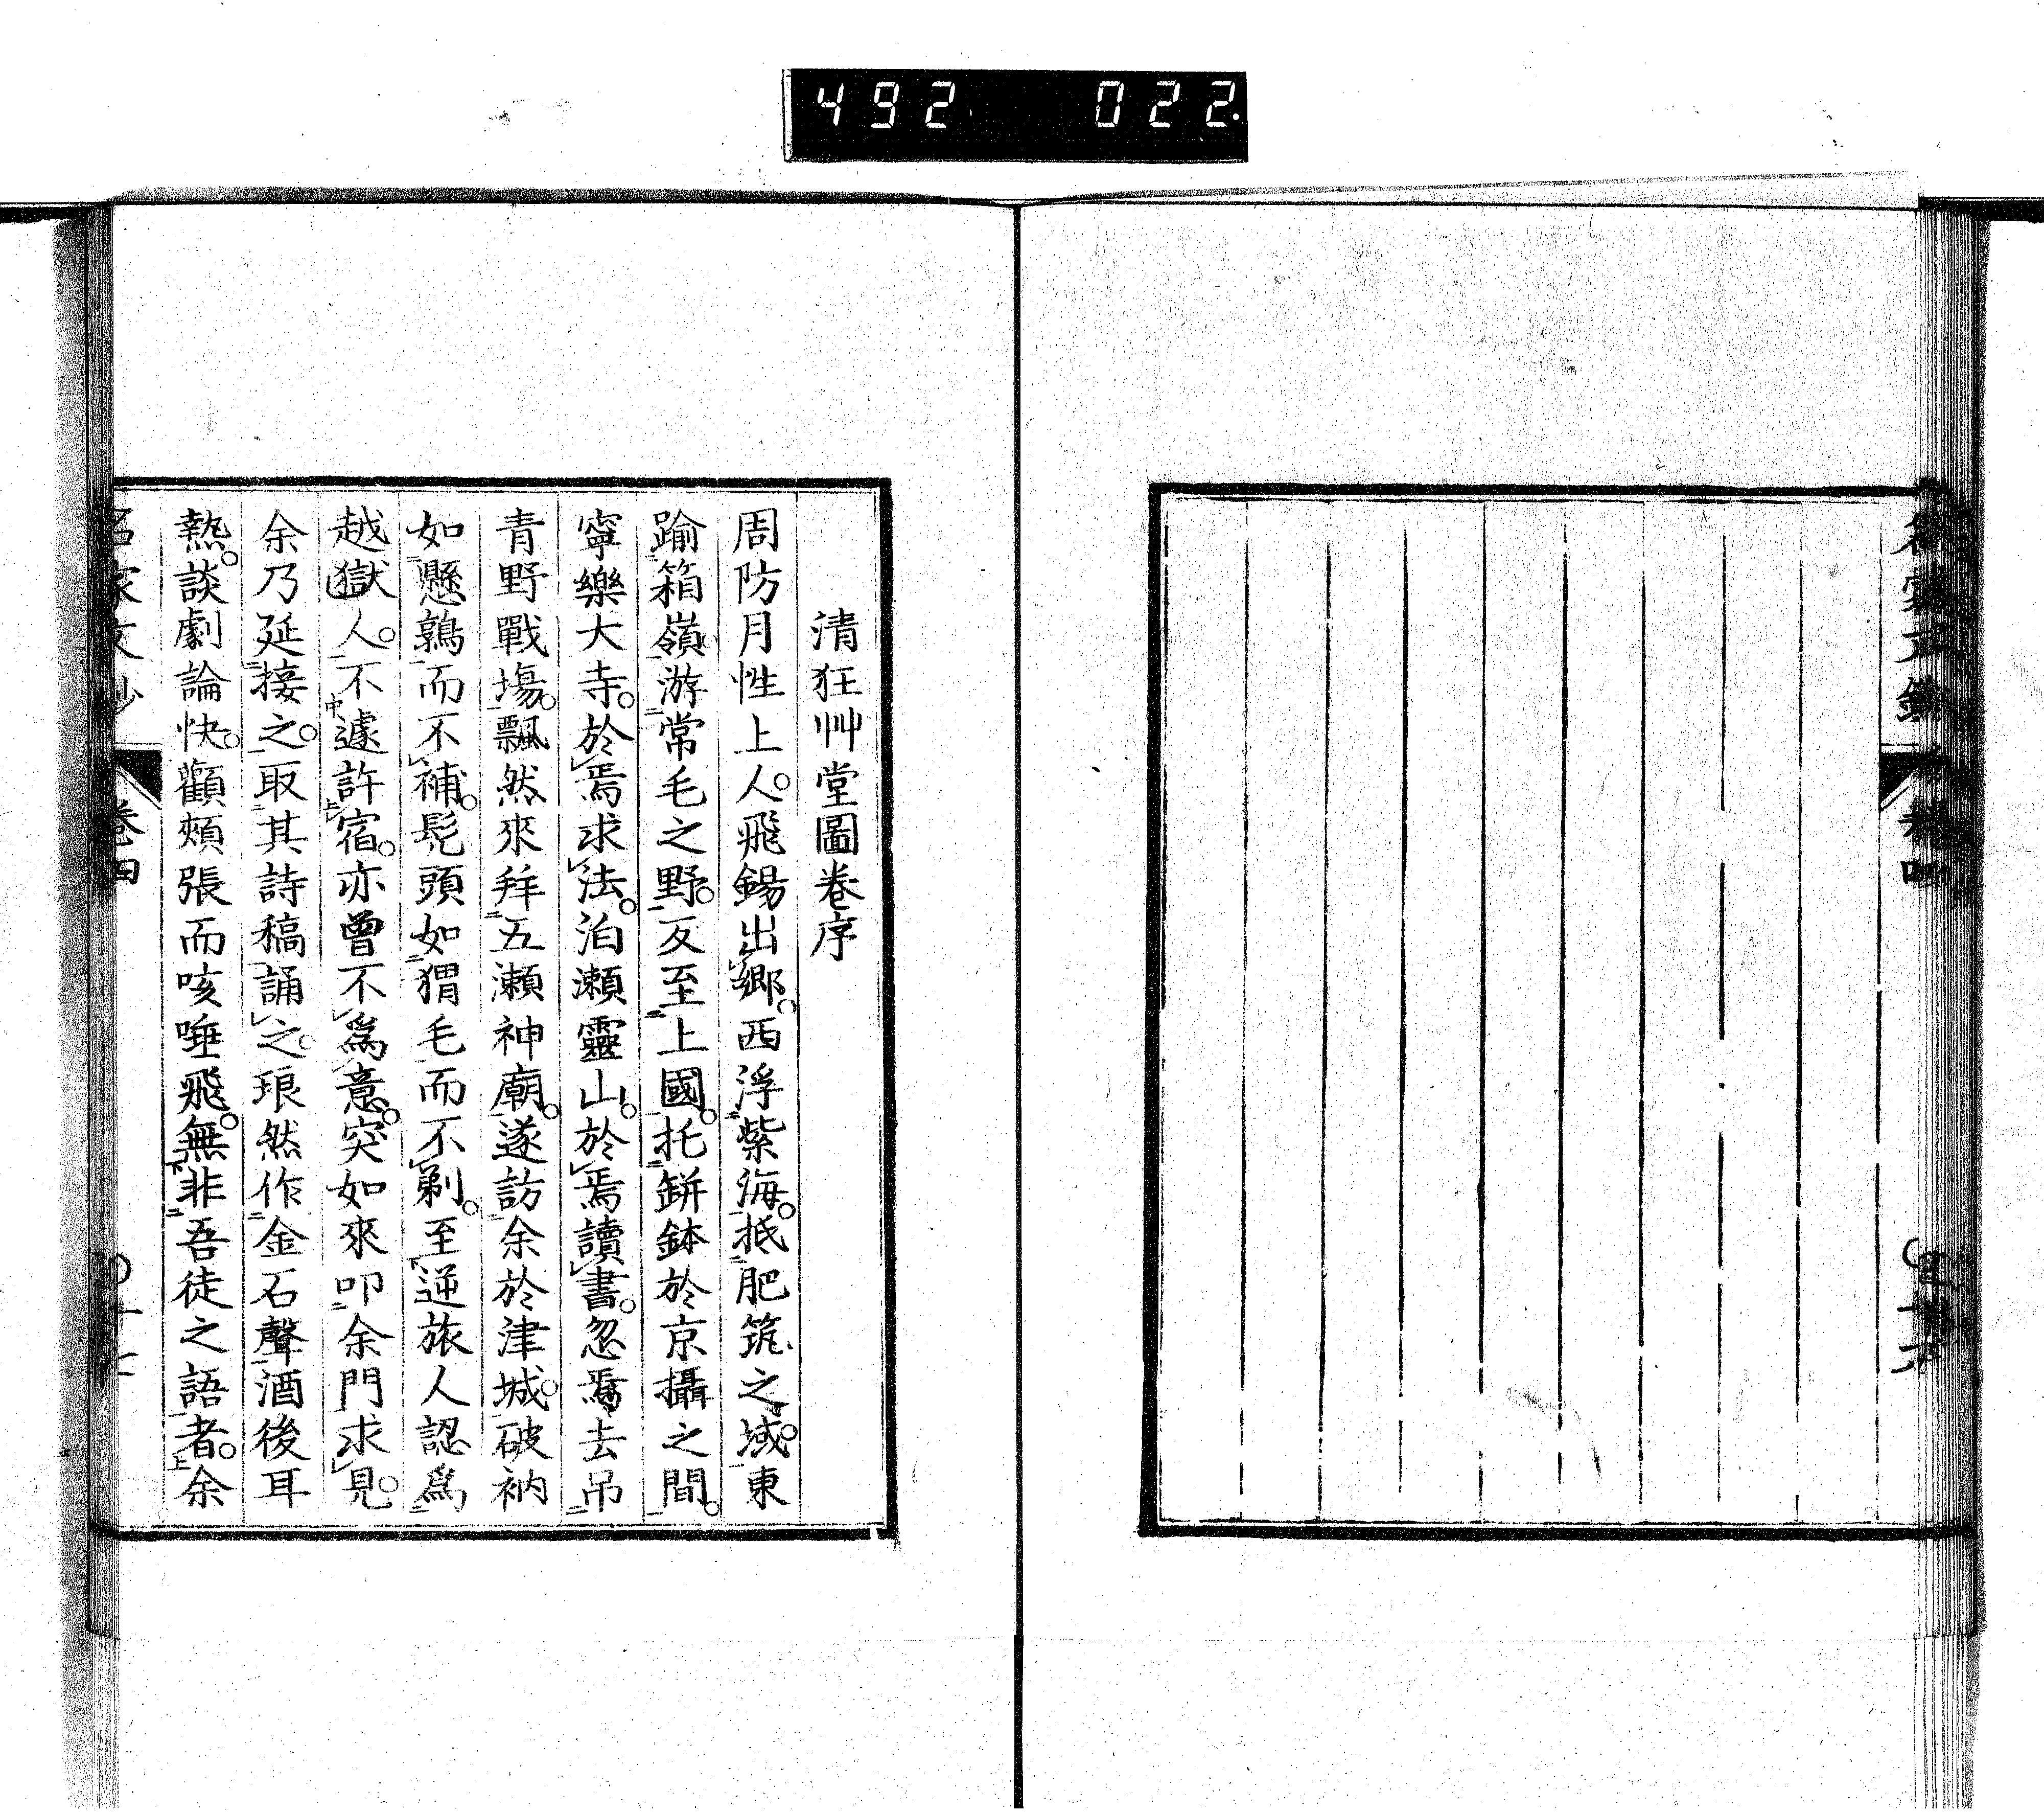 492 022
清狂艸堂圖卷序
周防月性上人。飛錫出鄉。西浮紫海。抵肥筑之域。東
踰箱嶺。游常毛之野。反至上國。托缾鉢於京攝之間。
寧樂大寺。於焉求法。泊瀨靈山。於焉讀書。忽焉去吊
青野戰場。飄然來拜五瀨神廟。遂訪余於津城。破衲
如懸鶉而不補。髡頭如猬毛而不剃。至逆旅人認爲
越獄人。不遽許宿。亦曾不爲意。突如來叩余門求見。
余乃延接之。取其詩稿誦之。琅然作金石聲。酒後耳
熱。談劇論快。顴頰張而咳唾飛。無非吾徒之語者。余
卷四